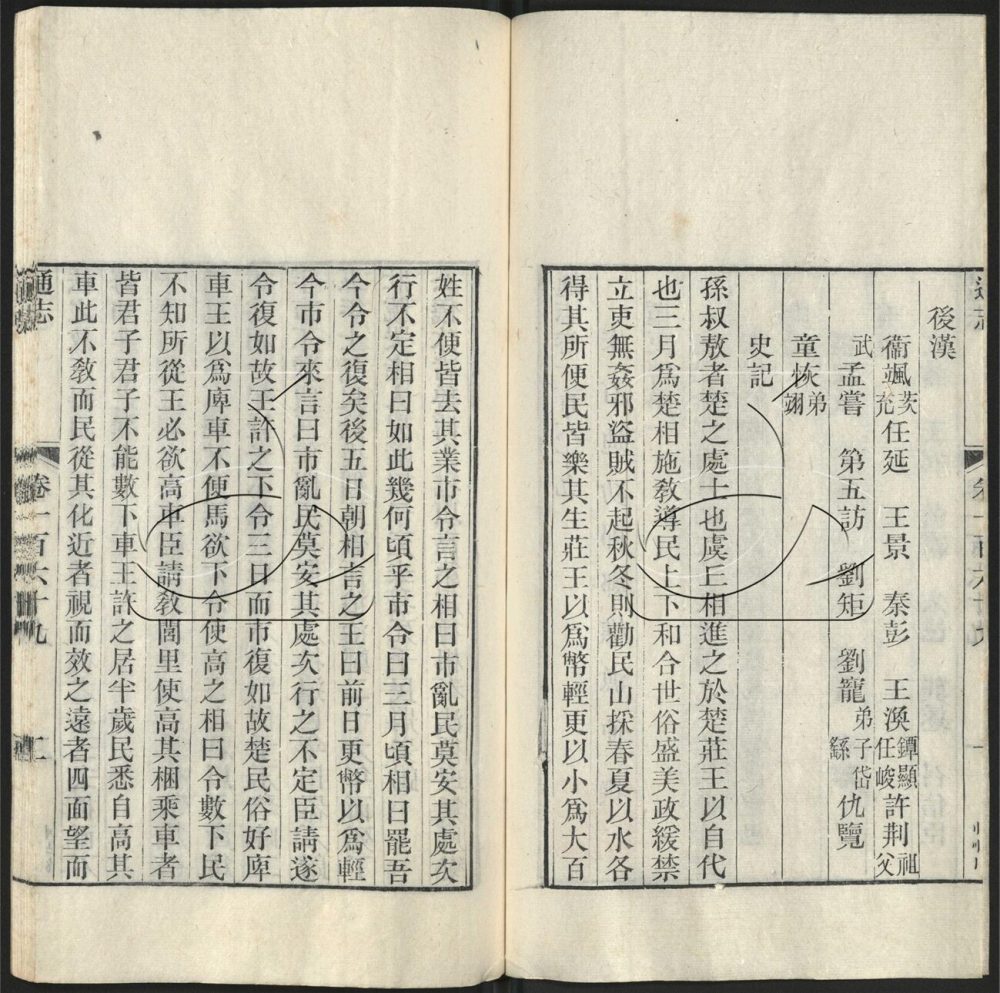 後漢
衞颯茨充任延　王景　秦彭　王渙鐔顯任峻許荆祖父
武孟嘗　第五訪　劉矩　劉寵弟子岱繇仇覽
童恢弟翊
史記
孫叔敖者楚之處士也虞丘相進之於楚莊王以自代
也三月爲楚相施敎導民上下和合世俗盛美政緩禁
立吏無姦邪盜賊不起秋冬則勸民山採春夏以水各
得其所便民皆樂其生莊王以爲幣輕更以小爲大百
姓不便皆去其業市令言之相曰市亂民莫安其處次
行不定相曰如此幾何頃乎市令曰三月頃相曰罷吾
今令之復矣後五日朝相言之王曰前日更幣以爲輕
今市令來言曰市亂民莫安其處次行之不定臣請遂
令復如故王許之下令三日而市復如故楚民俗好庳
車王以爲庳車不便馬欲下令使高之相曰令數下民
不知所從王必欲高車臣請敎閭里使高其梱乘車者
皆君子君子不能數下車王許之居半歲民悉自高其
車此不敎而民從其化近者視而效之遠者四面望而
通志　卷一百六十九　二